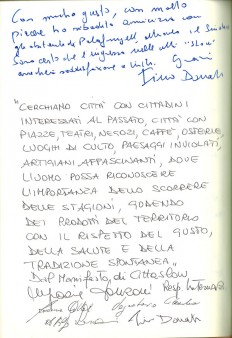 Con molto gusto, con molto
piacere ho ribadito amicizia con
gli abitanti di Palafrugell, attraverso il Sindaco
Sono certo che l'ingresso nelle città "Slow"
Grazie
"CERCHIAMO CITTÀ CON CITTADINI
INTERESSATI AL PASSATO, CITTÀ CON
PIAZZE, TEATRI, NEGOZI, CAFFÈ, OSTERIE,
LUOGHI DI CULTO, PAESAGGI INVIOLATI,
ARTIGIANI AFFASCINANTI, DOVE
L'UOMO POSSA RICONOSCERE
L'IMPORTANZA DELLO SCORRERE
DELLE STAGIONI, GODENDO
DEI PRODOTTI DEL TERRITORIO
CON IL RISPETTO DEL GUSTO,
DELLA SALUTE E DELLA
TRADIZIONE SPONTANEA"
Dal Manifesto di Cittaslow
Resp. Internaz.